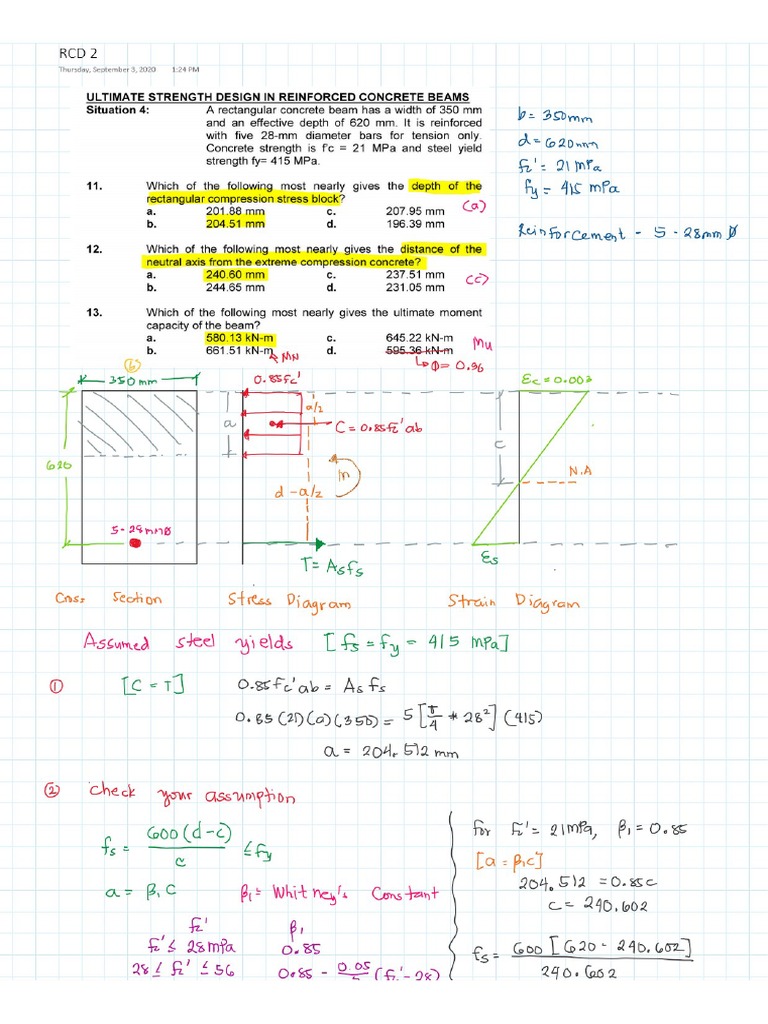 RCD 2
Thursday, September 3, 2020 1:24 PM
ULTIMATE STRENGTH DESIGN IN REINFORCED CONCRETE BEAMS
Situation 4: A rectangular concrete beam has a width of 350 mm
and an effective depth of 620 mm. It is reinforced
with five 28-mm diameter bars for tension only.
Concrete strength is f'c = 21 MPa and steel yield
strength fy= 415 MPa.
b= 350mm
d= 620mm
fc' = 21 MPa
fy = 415 MPa
Reinforcement - 5 - 28mm Ø
11. Which of the following most nearly gives the depth of the
rectangular compression stress block?
a. 201.88 mm c. 207.95 mm
b. 204.51 mm d. 196.39 mm
(a)
12. Which of the following most nearly gives the distance of the
neutral axis from the extreme compression concrete?
a. 240.60 mm c. 237.51 mm
b. 244.65 mm d. 231.05 mm
(c)
13. Which of the following most nearly gives the ultimate moment
capacity of the beam?
a. 580.13 kN-m c. 645.22 kN-m
b. 661.51 kN-m d. 595.36 kN-m
Mu
Mn
Φ= 0.96
(b)
350mm
0.85fc'
Ɛc = 0.003
a/2
a
C = 0.85fc' ab
c
620
N.A
d - a/2
m
5-28mmØ
T = Asfs
Ɛs
Cross Section
Stress Diagram
Strain Diagram
Assumed steel yields [fs = fy = 415 MPa]
① [C = T] 0.85fc'ab = As fs
0.85(21)(a)(350) = 5[π/4 * 28²](415)
a = 204.512 mm
② Check your assumption
fs = 600(d-c)/c ≤ fy
a = β₁ c β₁ = Whitney's Constant
fc' β₁
fc' ≤ 28MPa 0.85
28 ≤ fc' ≤ 56 0.85 - 0.05/ (fc' - 28)
for fc' = 21MPa, β₁ = 0.85
[a = β₁c]
204.512 = 0.85c
c = 240.602
fs = 600[620 - 240.602]/240.602